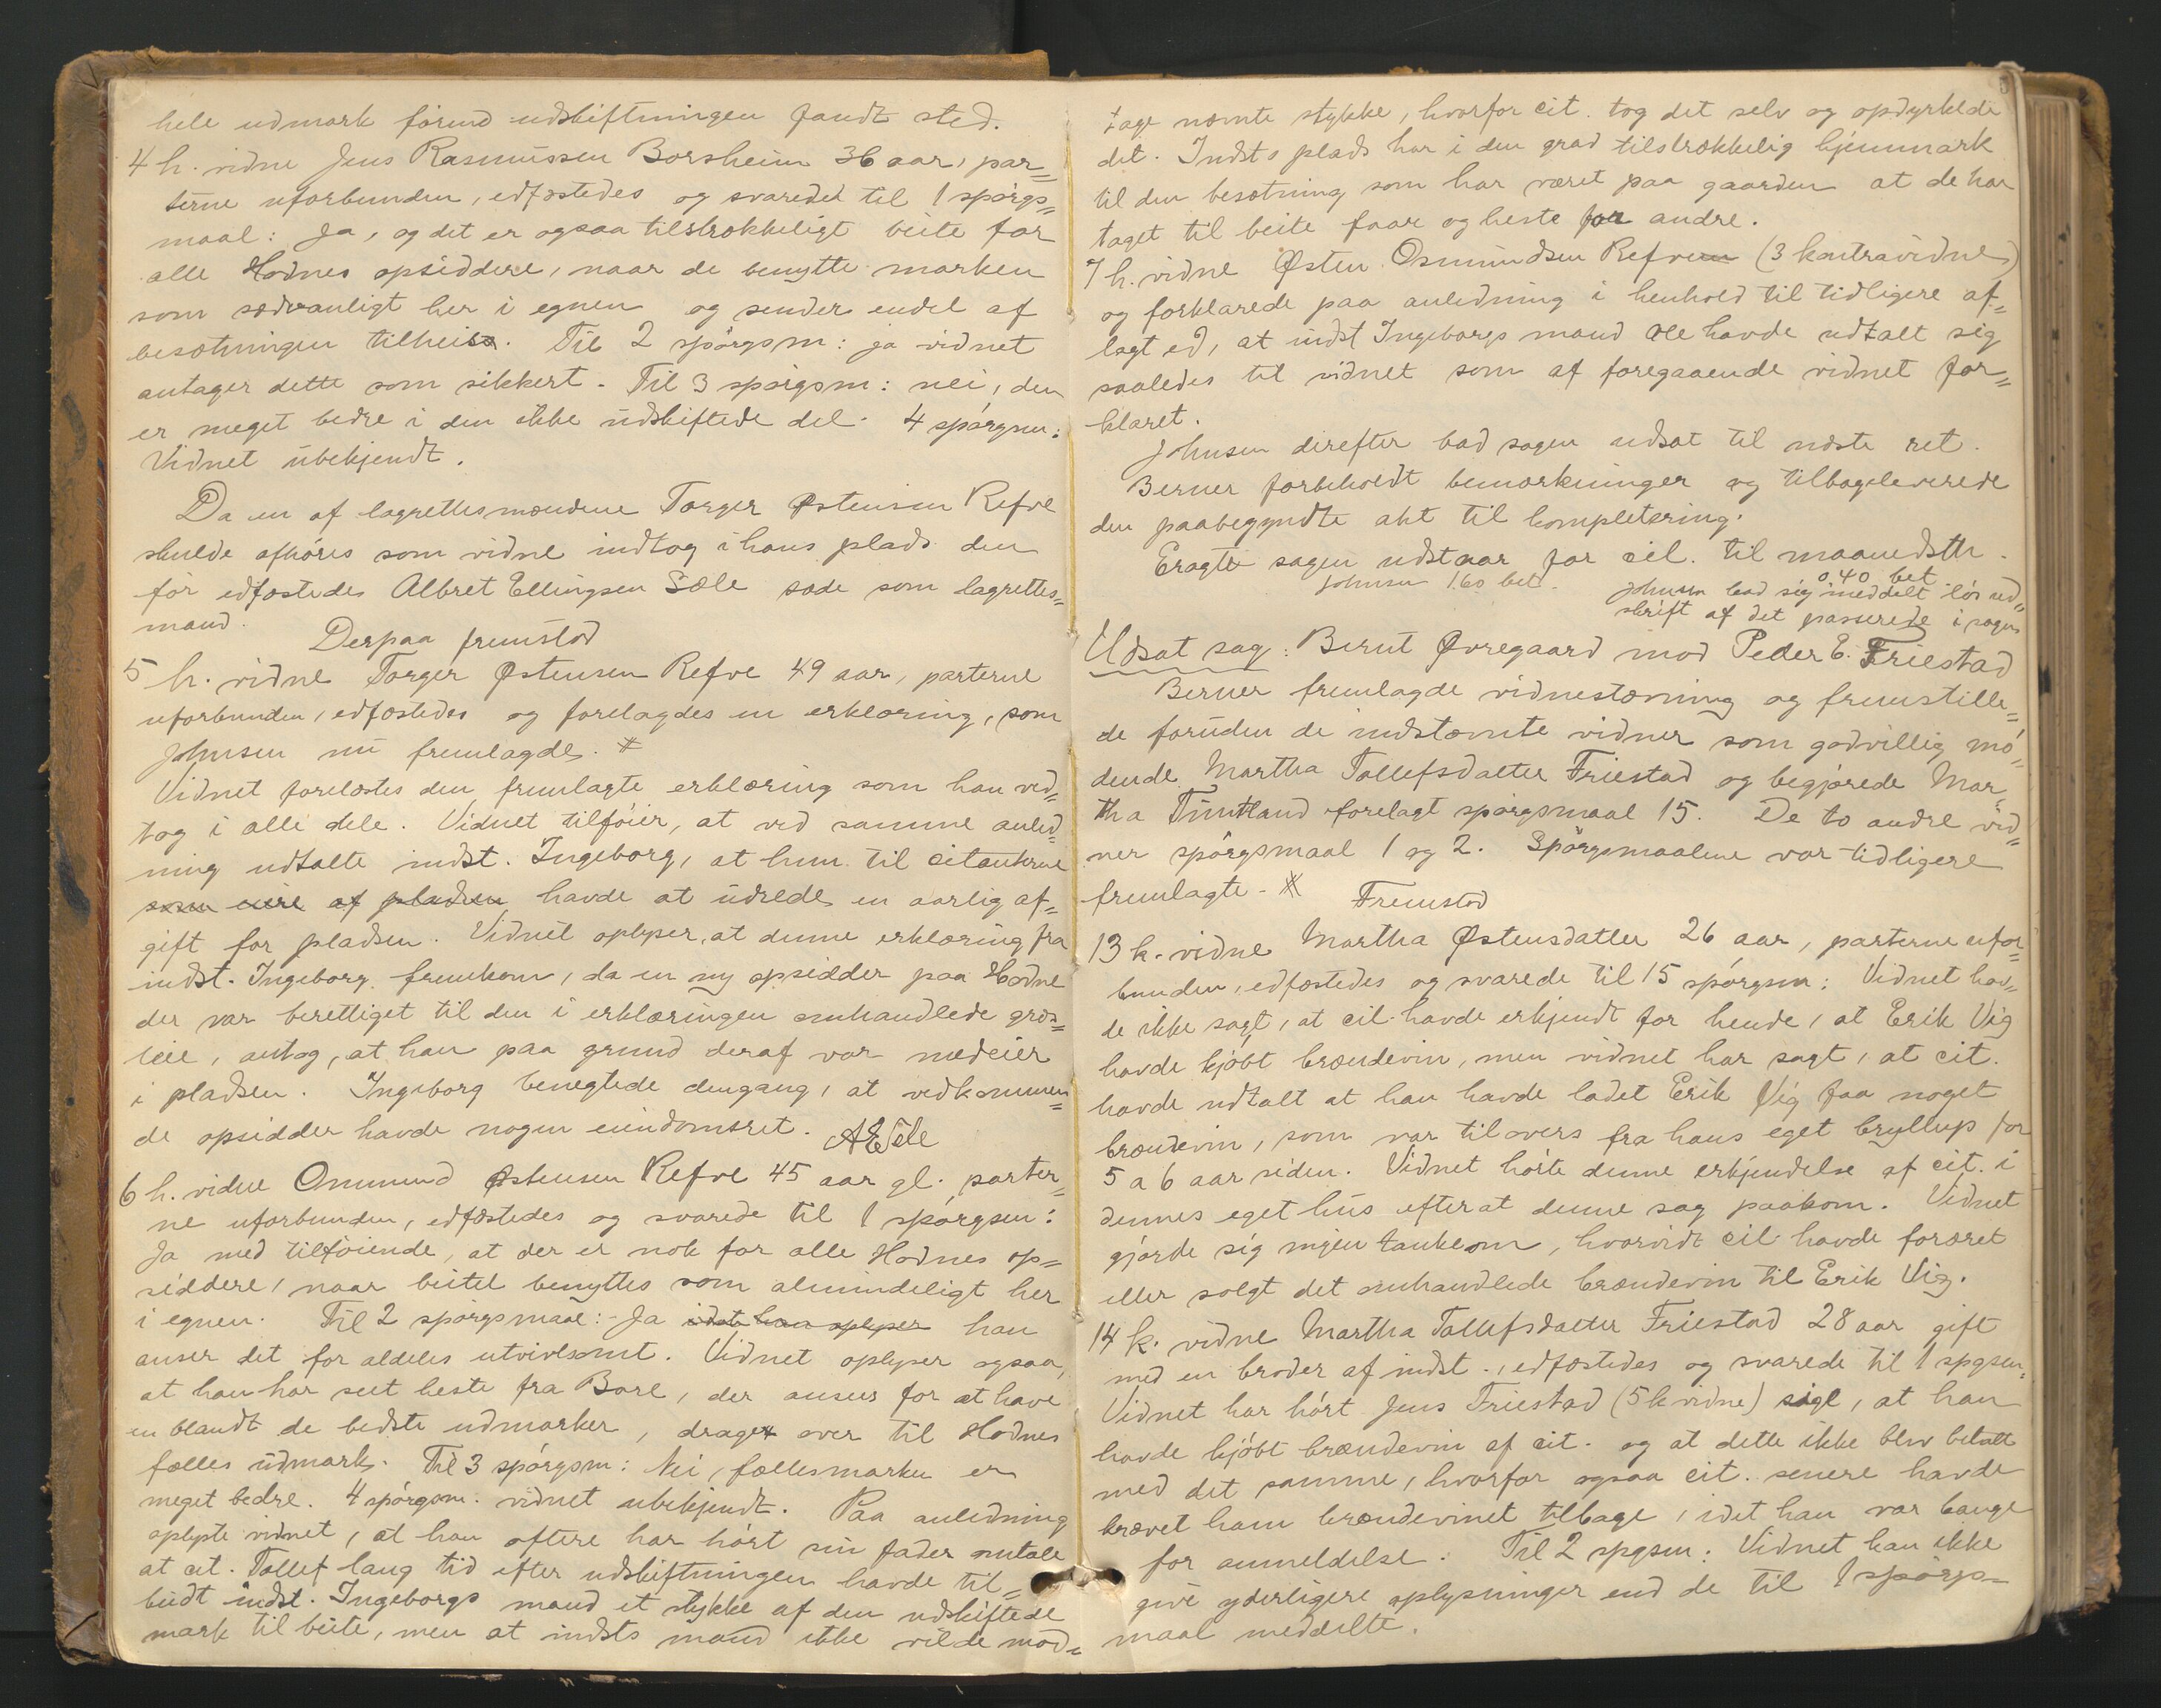 hele udmark förend udskiftningen fandt sted.
4 h. vidne Jens Rasmussen Borsheim 36 aar, par=
terne uforbunden, edfæstedes og svaredes til 1 spörgs=
maal: Ja, og det er ogsaa tilstrækkeligt beite for
alle Hodnes opsiddere, naar de benytte marken
som sædvanligt her i egnen og sender endel af
besætningen tilheis. Til 2 spörgsm: ja vidnet
antager dette som sikkert. Til 3 spörgsm: nei, den
er meget bedre i den ikke udskiftede del. 4 spörgsm:
Vidnet ubekjendt.
Da en af lagrettesmændene Torger Østensen Refve
skulde afhöres som vidne indtog i hans plads den
för edfæstedes Albret Ellingsen Sæle sæde som lagrettes=
mand.
Derpaa fremstod
5 h. vidne Torger Østensen Refve 49 aar, parterne
uforbunden, edfæstedes og forelagdes en erklæring, som
Johnsen nu fremlagde. #
Vidnet forelæstes den fremlagte erklæring som han ved=
tog i alle dele. Vidnet tilföier, at ved samme anled=
ning udtalte indst. Ingeborg, at hun til citanterne
som eiere af pladsen havde at udrede en aarlig af=
gift for pladsen. Vidnet oplyser, at denne erklæring fra
indst. Ingeborg fremkom, da en ny opsidder paa Hodne
der var berettiget til den i erklæringen omhandlede græs=
leie, antog, at han paa grund deraf var medeier
i pladsen. Ingeborg benegtede dengang, at vedkommen=
de opsidder havde nogen eiendomsret. AESele
6 h. vidne Ommund Østensen Refve 45 aar gl. parter=
ne uforbunden, edfæstedes og svarede til 1 spörgsm:
Ja med tilföiende, at der er nok for alle Hodnes op=
siddere, naar beitet benyttes som almindeligt her
i egnen. Til 2 spörgsmaal: Ja idet han oplyser han
anser det for aldeles utvivlsomt. Vidnet oplyser ogsaa,
at han har seet heste fra Bore, der ansees for at have
en blandt de bedste udmarker, drages over til Hodnes
fælles udmark. Til 3 spörgsm: Nei, fællesmarken er
meget bedre. 4 spörgsm: vidnet ubekjendt. Paa anledning
oplyste vidnet, at han oftere har hört sin fader omtale
at cit. Tollef lang tid efter udskiftningen havde til=
budt indst. Ingeborgs mand et stykke af den udskiftede
mark til beite, men at indsts mand ikke vilde mod=
tage nævnte stykke, hvorfor cit. tog det selv og opdyrkede
det. Indsts plads har i den grad tilstrækkelig hjemmark
til den besætning som har været paa gaarden at de har
taget til beite faar og heste for andre.
7 h. vidne Østen Osmundsen Refve (3 kontravidne)
og forklarede paa anledning i henhold til tidligere af=
lagt ed, at indst Ingeborgs mand Ole havde udtalt sig
saaledes til vidnet som af foregaaende vidnet for=
klaret.
Johnsen derefter bad sagen udsat til næste ret.
Berner forbeholdt bemærkninger og tilbageleverede
den paabegyndte akt til komplettering.
Eragtet sagen udstaar for cit. til maanedsth.
Johnsen 1.60 bet. 0.40 bet
Johnsen bad sig meddelt lös ud=
skrift af det passerede i sagen
Udsat sag: Bernt Øvregaard mod Peder E. Friestad
Berner fremlagde vidnestævning og fremstille=
de foruden de indstævnte vidner som godvillig mö=
dende Martha Tollefsdatter Friestad og begjærede Mar=
tha Timtland forelagt spörgsmaal 15. De to andre vid=
ner spörgsmaal 1 og 2. Spörgsmaalene var tidligere
fremlagte. #
Fremstod
13 k. vidne Martha Østensdatter 26 aar, parterne ufor=
bunden, edfæstedes og svarede til 15 spörgsm: Vidnet hav=
de ikke sagt, at cit. havde erkjendt for hende, at Erik Vig
havde kjöbt brændevin, men vidnet har sagt, at cit.
havde udtalt at han havde ladet Erik Vig faa noget
brændevin, som var tilovers fra hans eget bryllup for
5 a 6 aar siden. Vidnet hörte denne erkjendelse af cit. i
dennes eget hus efter at denne sag paakom. Vidnet
gjorde sig ingen tanke om, hvorvidt cit havde foræret
eller solgt det omhandlede brændevin til Erik Vig.
14 k. vidne Martha Tollefsdatter Friestad 28 aar gift
med en broder af indst., edfæstedes og svarede til 1 spgsm.
Vidnet har hört Jens Friestad (5 k vidne) sige, at han
havde kjöbt brændevin af cit. og at dette ikke blev betalt
med det samme, hvorfor ogsaa cit. senere havde
krævet ham brændevinet tilbage, idet han var bange
for anmeldelse. Til 2 spgsm: Vidnet kan ikke
give yderligere oplysninger end de til 1 spörgs=
maal meddelte.